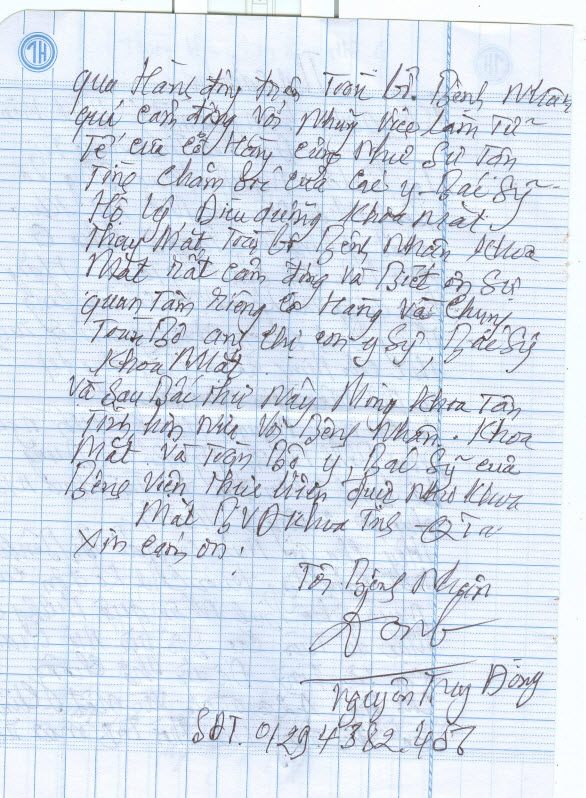 TH
qua Hành động trên Toàn bộ Bệnh Nhân
quá cảm động với những việc làm Tử
Tế của cô Hằng cũng như sự Tận
Tình chăm sóc của các y Bác Sỹ
Hộ lý Điều dưỡng Khoa mắt.
Thay Mặt Toàn bộ Bệnh Nhân Khoa
Mắt rất cảm động và Biết ơn Sự
quan Tâm riêng cô Hằng và chung
Toàn Bộ anh chị em y Sỹ, Bác Sỹ
Khoa Mắt
và Sau Bức thư này Mong Khoa Tận
Tình hơn nữa với Bệnh Nhân. Khoa
Mắt và Toàn Bộ y, Bác Sỹ của
Bệnh Viện thực hiện được như Khoa
Mắt BVĐKhoa Tỉnh - QTrị
Xin cảm ơn.
Tôi Bệnh Nhân
Đông
Nguyễn Đông
SĐT. 01294382.